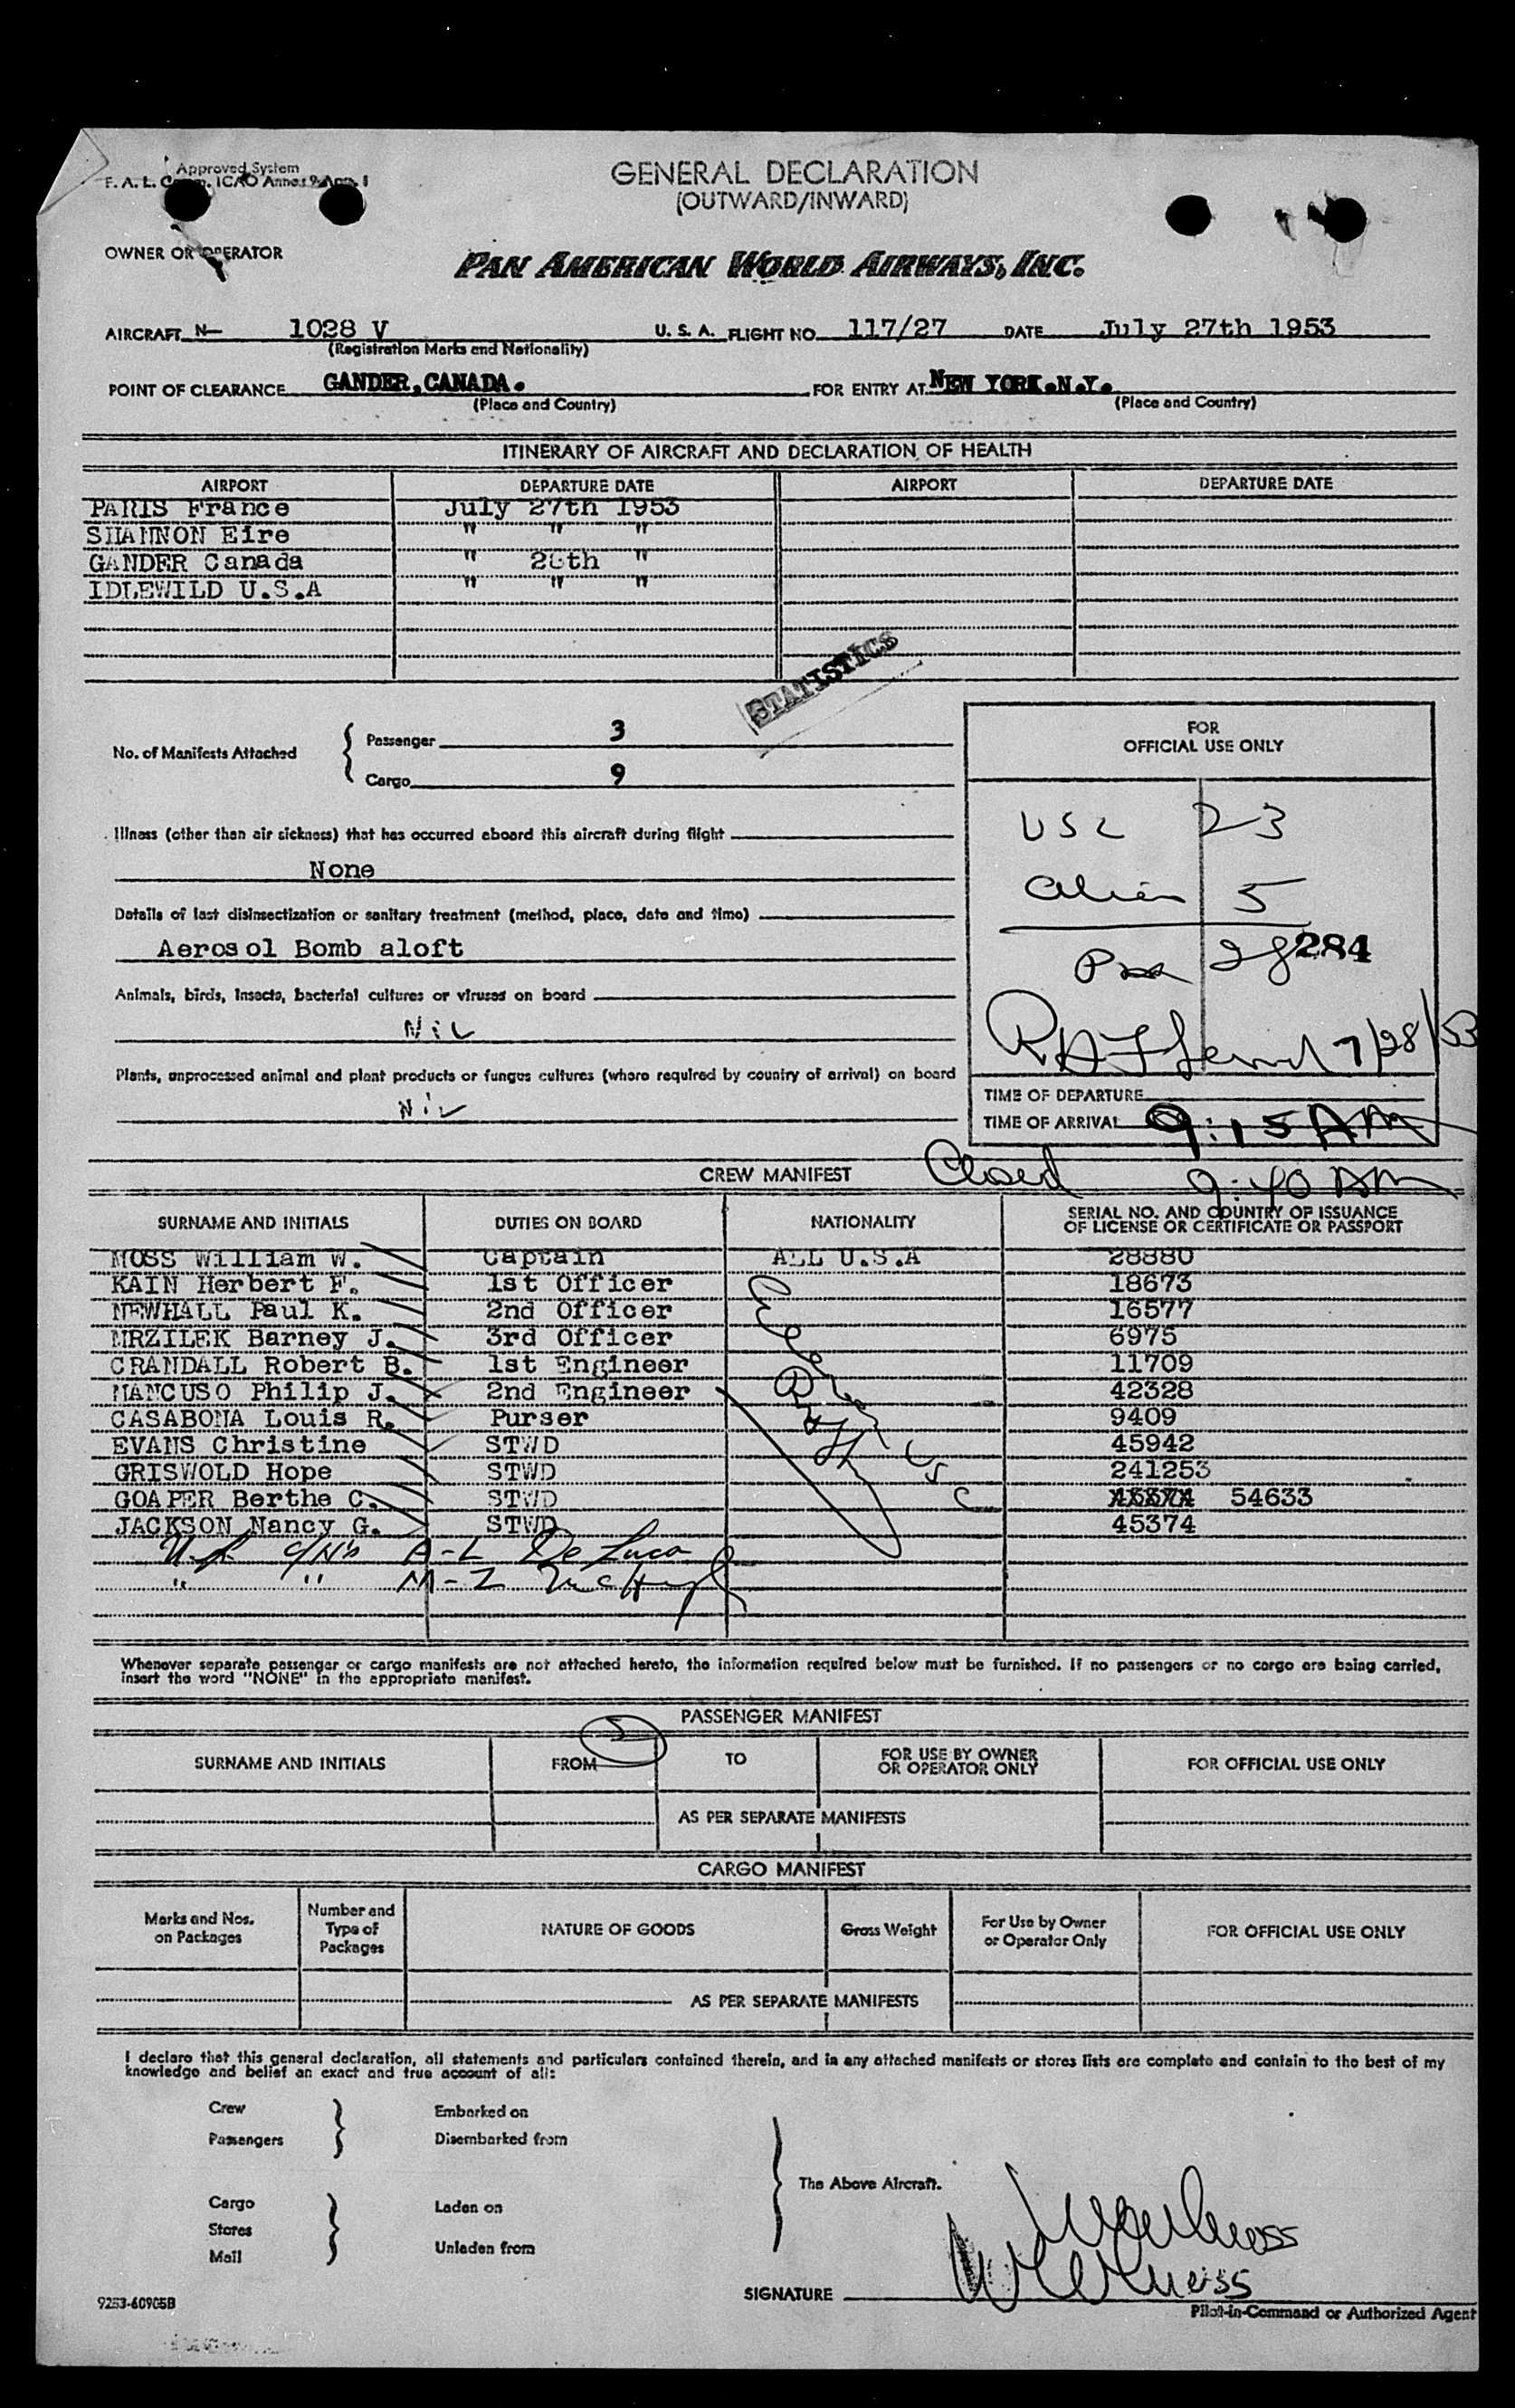 Approved System
F. A. L. Comm. ICAO Annex 9 App. 1
GENERAL DECLARATION
(OUTWARD/INWARD)
OWNER OR OPERATOR
PAN AMERICAN WORLD AIRWAYS, INC.
AIRCRAFT N- 1028 V U. S. A. FLIGHT NO. 117/27 DATE July 27th 1953
(Registration Marks and Nationality)
POINT OF CLEARANCE GANDER, CANADA. FOR ENTRY AT NEW YORK.N.Y.
(Place and Country) (Place and Country)
ITINERARY OF AIRCRAFT AND DECLARATION OF HEALTH
AIRPORT DEPARTURE DATE AIRPORT DEPARTURE DATE
PARIS France July 27th 1953
SHANNON Eire " " "
GANDER Canada " 28th "
IDLEWILD U.S.A " " "
STATISTICS
No. of Manifests Attached
Passenger 3
Cargo 9
FOR
OFFICIAL USE ONLY
USC 23
Alien 5
Pax 28 284
7/28/53
TIME OF DEPARTURE
TIME OF ARRIVAL 9:15 AM
Illness (other than air sickness) that has occurred aboard this aircraft during flight
None
Details of last disinsectization or sanitary treatment (method, place, date and time)
Aerosol Bomb aloft
Animals, birds, insects, bacterial cultures or viruses on board
Nil
Plants, unprocessed animal and plant products or fungus cultures (where required by country of arrival) on board
Nil
CREW MANIFEST Closed 9:40 AM
SURNAME AND INITIALS DUTIES ON BOARD NATIONALITY SERIAL NO. AND COUNTRY OF ISSUANCE
OF LICENSE OR CERTIFICATE OR PASSPORT
MOSS William W. Captain ALL U.S.A 28880
KAIN Herbert F. 1st Officer 18673
NEWHALL Paul K. 2nd Officer 16577
MRZILEK Barney J. 3rd Officer 6975
CRANDALL Robert B. 1st Engineer 11709
MANCUSO Philip J. 2nd Engineer 42328
CASABONA Louis R. Purser 9409
EVANS Christine STWD 45942
GRISWOLD Hope STWD 241253
GOAPER Berthe C. STWD 54633
JACKSON Nancy G. STWD 45374
A-L De Luca
" " M-Z
Whenever separate passenger or cargo manifests are not attached hereto, the information required below must be furnished. If no passengers or no cargo are being carried,
insert the word "NONE" in the appropriate manifest.
PASSENGER MANIFEST
SURNAME AND INITIALS FROM TO FOR USE BY OWNER
OR OPERATOR ONLY FOR OFFICIAL USE ONLY
AS PER SEPARATE MANIFESTS
CARGO MANIFEST
Marks and Nos.
on Packages
Number and
Type of
Packages
NATURE OF GOODS
Gross Weight
For Use by Owner
or Operator Only
FOR OFFICIAL USE ONLY
AS PER SEPARATE MANIFESTS
I declare that this general declaration, all statements and particulars contained therein, and in any attached manifests or stores lists are complete and contain to the best of my
knowledge and belief an exact and true account of all:
Crew Embarked on
Passengers Disembarked from
The Above Aircraft.
Cargo Laden on
Stores
Mail Unladen from
SIGNATURE
Pilot-in-Command or Authorized Agent
9253-60905B